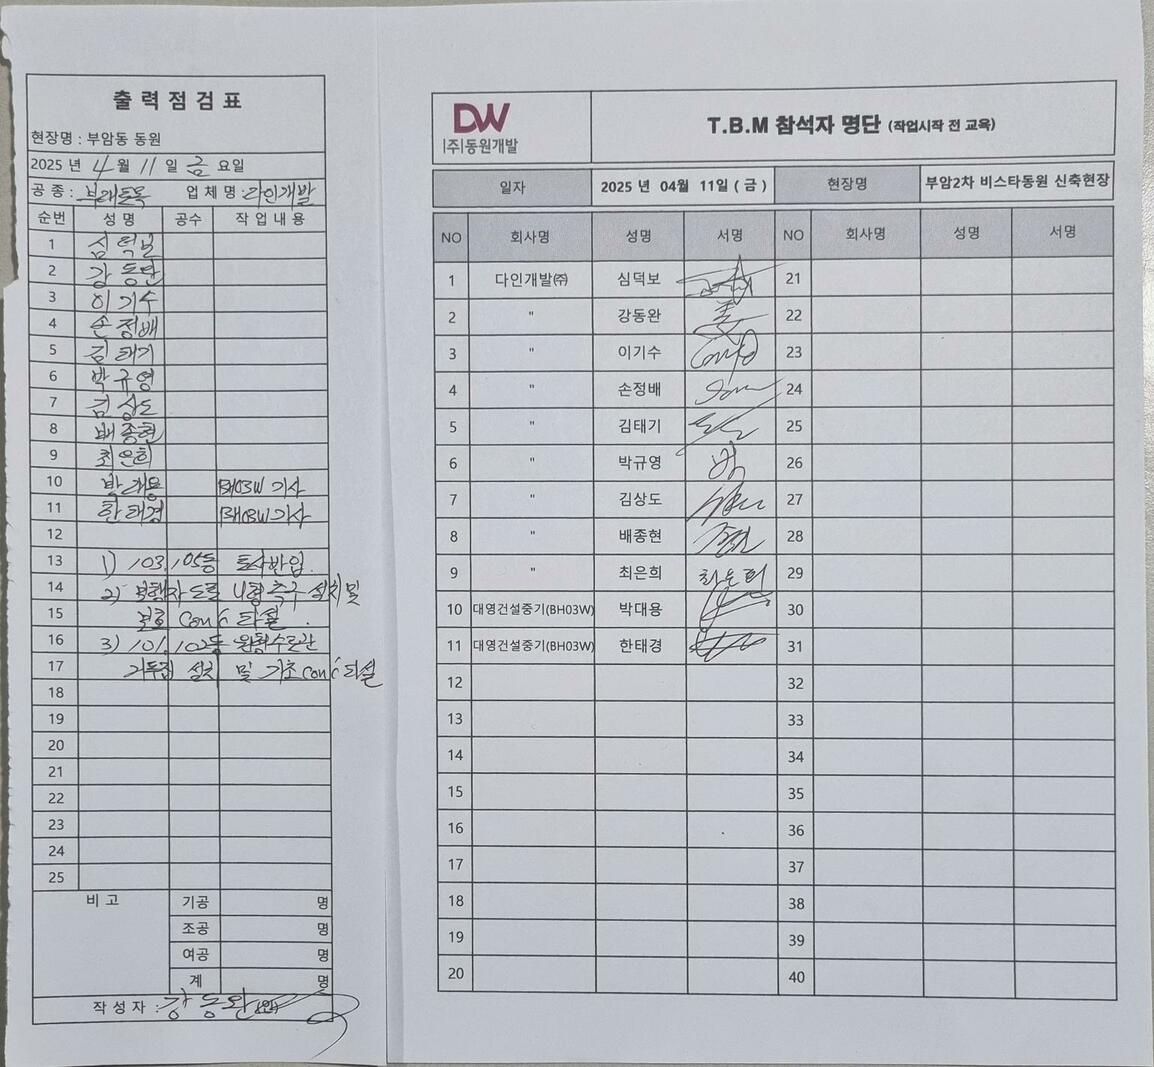 출력점검표
현장명 : 부암동 동원
2025 년 4 월 11 일 금 요일
공 종 : 부대토목 업 체 명 : 다인개발
순번 성 명 공수 작 업 내 용
1 심덕보
2 강동완
3 이기수
4 손정배
5 김태기
6 박규영
7 김상도
8 배종현
9 최은희
10 박대용 BH03W 기사
11 한태경 BH03W 기사
12
13 1) 103, 105동 토사반입.
14 2) 보행자도로 U형측구 설치 및
15 보호 con'c 타설.
16 3) 101, 102동 원형수로관
17 거푸집 설치 및 기초con'c 타설
18
19
20
21
22
23
24
25
비 고 기공 명
조공 명
여공 명
계 명
작 성 자 : 강동완
DW
(주)동원개발
T.B.M 참석자 명단 (작업시작 전 교육)
일자 2025 년 04월 11일 ( 금 ) 현장명 부암2차 비스타동원 신축현장
NO 회사명 성명 서명 NO 회사명 성명 서명
1 다인개발㈜ 심덕보 21
2 " 강동완 姜 22
3 " 이기수 23
4 " 손정배 24
5 " 김태기 25
6 " 박규영 26
7 " 김상도 27
8 " 배종현 28
9 " 최은희 최은희 29
10 대영건설중기(BH03W) 박대용 30
11 대영건설중기(BH03W) 한태경 31
12 32
13 33
14 34
15 35
16 36
17 37
18 38
19 39
20 40